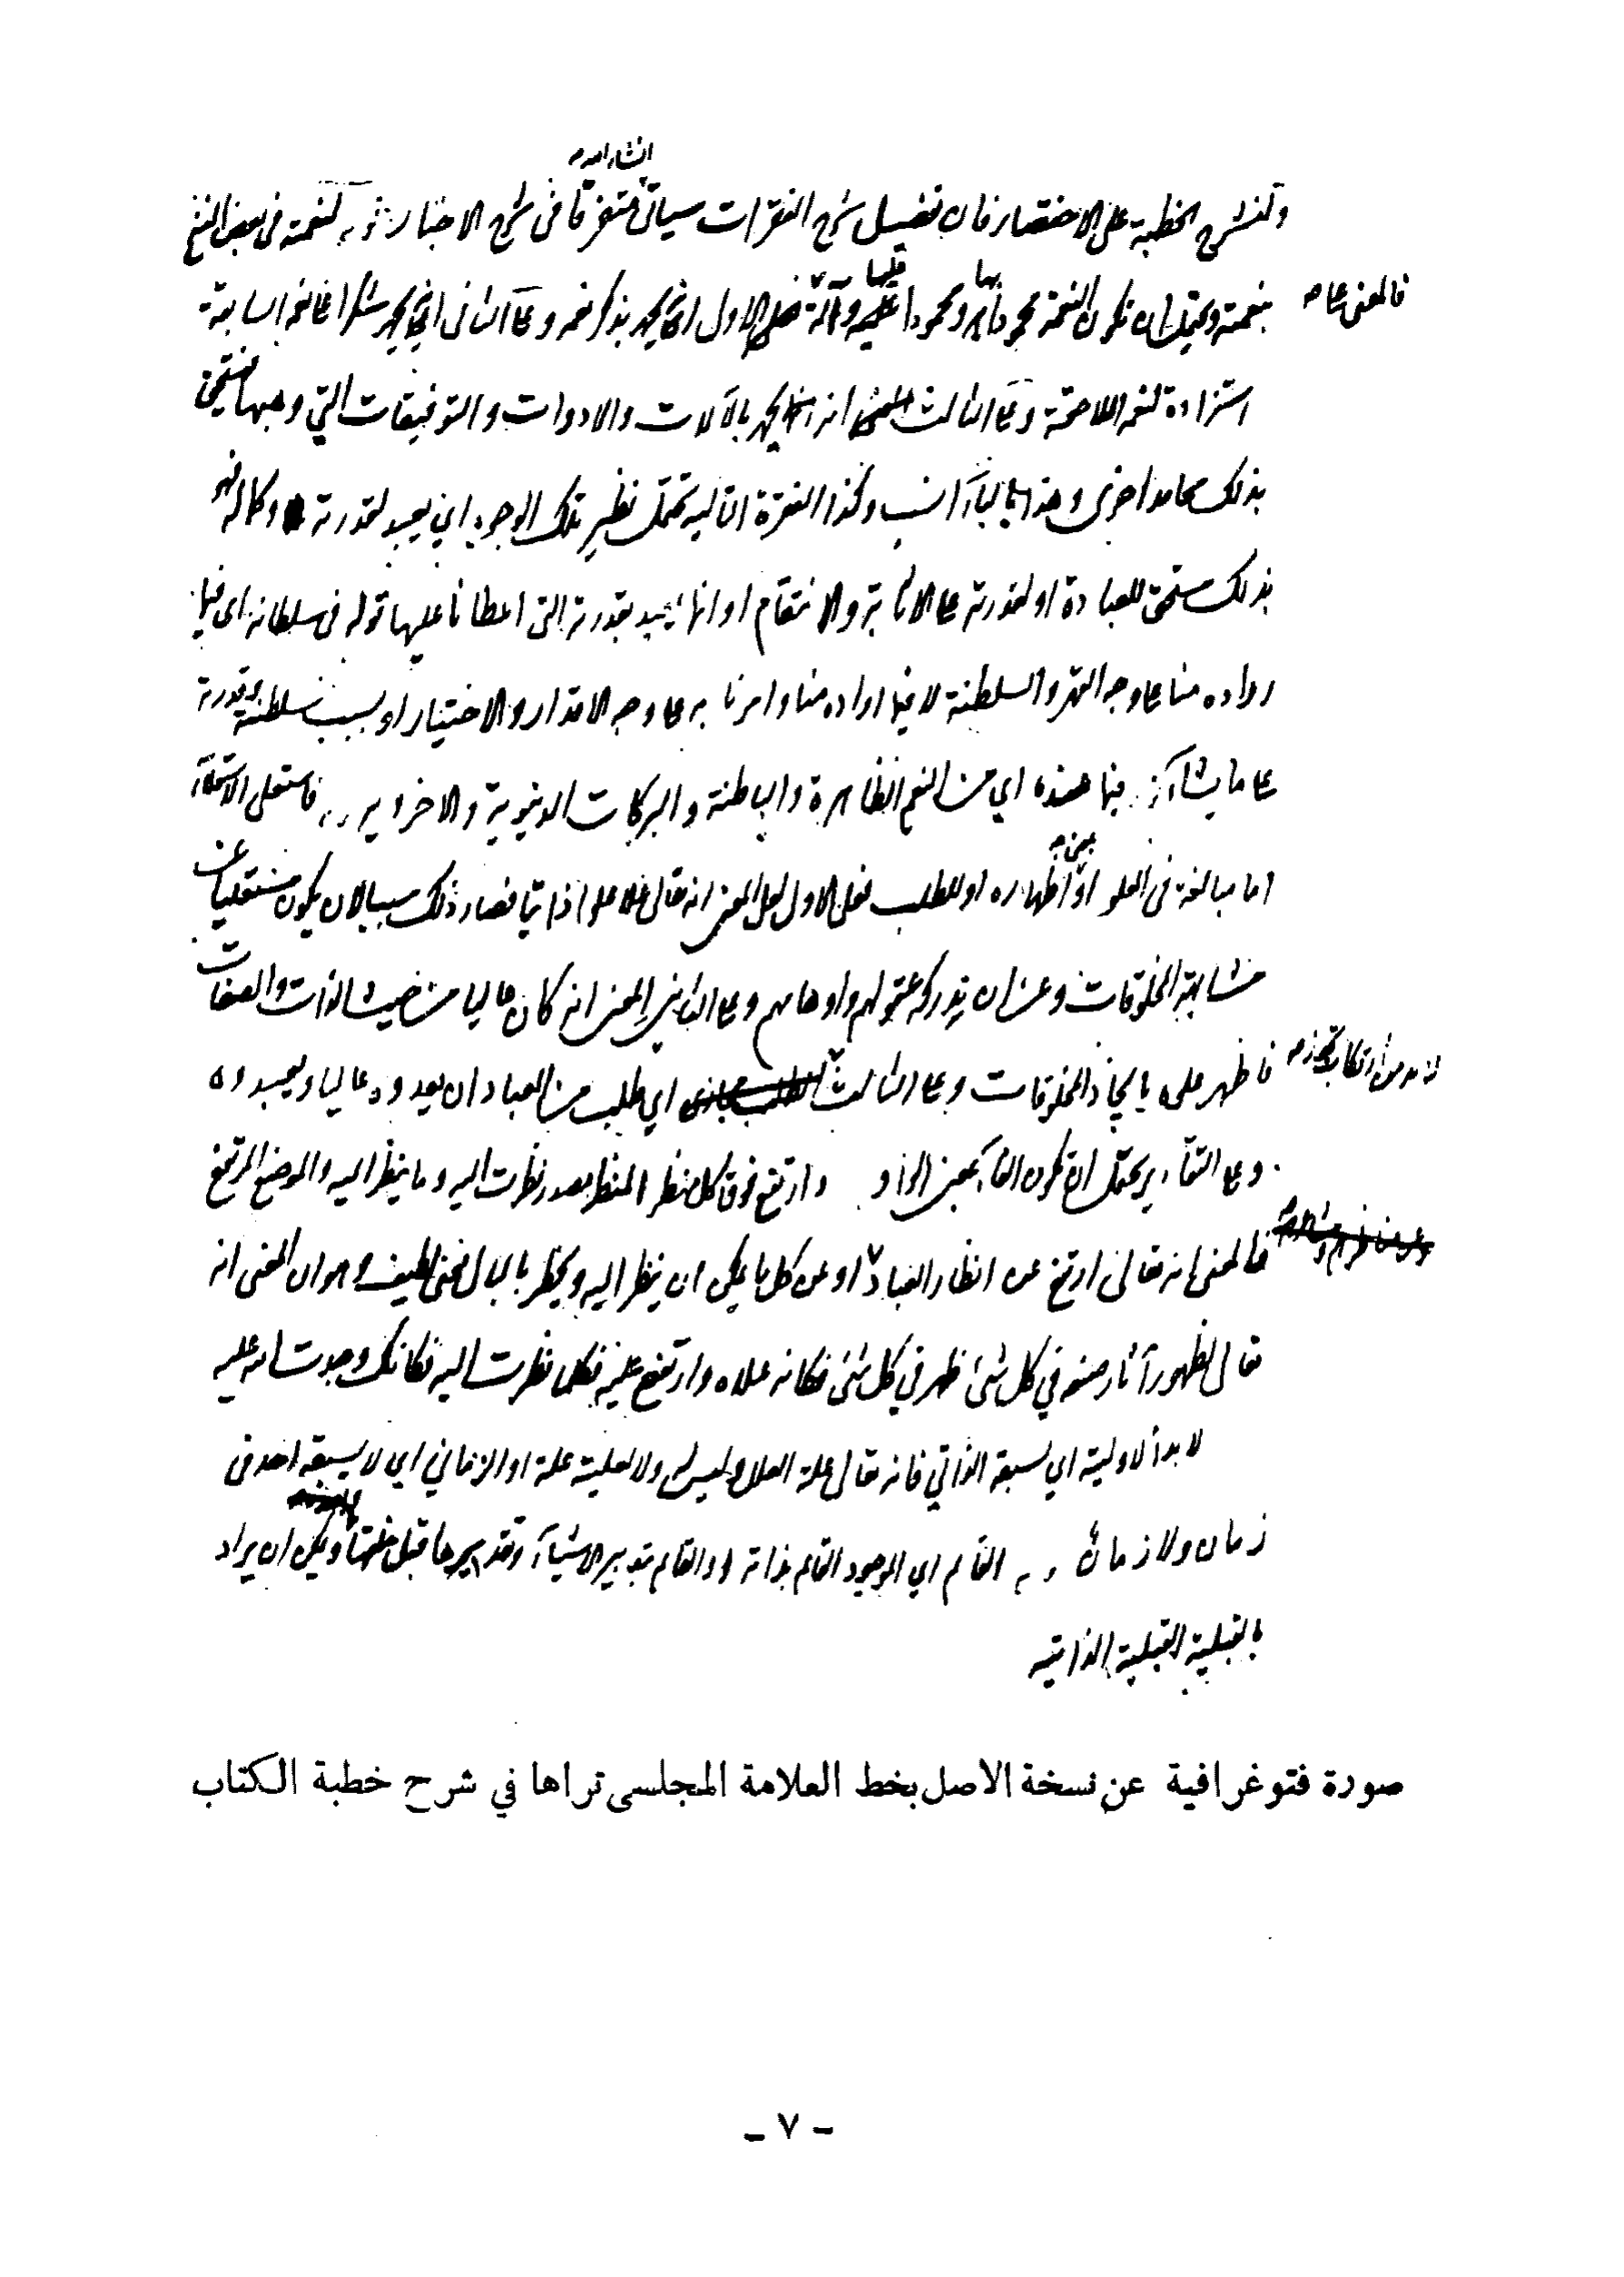 انشاء الله
ولنشرح الخطبة على الاختصار فان تفصيل شرح الفقرات سيأتي متفرقا في شرح الاخبار لنعمته في بعض النسخ
بنعمته ويحتمل ان تكون النعمة محمودا بها ومحمودا عليها وآلة فعلى الاول انما يحمد بذكر نعمه وعلى الثاني انما يحمد شكرا على نعمه السابقة
فالمعنى على
استزادة لنعمه اللاحقة وعلى الثالث انه انما يحمد بالآلات والادوات والتوفيقات التي وهبها فيستحق
بذلك محامد اخرى وهذا بالباء انسب وكذا الفقرة التالية تحتمل نظير تلك الوجوه اي يعبد لقدرته وكماله فهو
بذلك مستحق للعبادة او لقدرته على الاثابة والانتقام او انما يعبد بقدرته التي اعطانا عليها قوله في سلطانه اي فيما
اراده منا على وجه القهر والسلطنة لا فيما اراده منا وامرنا به على وجه الاقدار والاختيار او بسبب سلطنته وقدرته
على ما يشاء فيما عنده اي من النعم الظاهرة والباطنة والبركات الدنيوية والاخروية فاستعلى الاستعلاء
اما مبالغة في العلو او بمعنى اظهاره او للطلب فعلى الاول لعل المعنى انه تعالى علا علوا ذاتيا فصار ذلك سببا لان يكون مستعليا عن
مشابهة المخلوقات وعن ان تدركه عقولهم واوهامهم وعلى الثاني المعنى انه كان عاليا من حيث الذات والصفات
فاظهر علوه بايجاد المخلوقات وعلى الثالث اي طلب من العباد ان يعدوه عاليا ويعبدوه
لا بد من ارتكاب تجوز
وعلى التقادير يحتمل ان تكون الفاء بمعنى الواو وارتفع فوق كل منظر المنظر مصدر نظرت اليه وما ينظر اليه والموضع المرتفع
فالمعنى انه تعالى ارتفع عن انظار العباد او عن كل ما يمكن ان ينظر اليه ويخطر بالبال معنى لطيف وهو ان المعنى انه
تعالى لظهور آثار صنعه في كل شئ ظهر في كل شئ فكانه علاه وارتفع عليه فكلما نظرت اليه فكانك وجدت الله عليه
لا بدأ لاوليته اي لسبقه الذاتي فانه تعالى علة العلل وليس له ولا لعليته علة او الزماني اي لا يسبقه احد في
زمان ولا زمان القائم اي الموجود القائم بذاته او القائم بتدبير الاشياء وتقديرها قبل خلقها ويمكن ان يراد
بالقبلية القبلية الذاتية
صورة فتوغرافية عن نسخة الاصل بخط العلامة المجلسى تراها في شرح خطبة الكتاب
- ٧ -